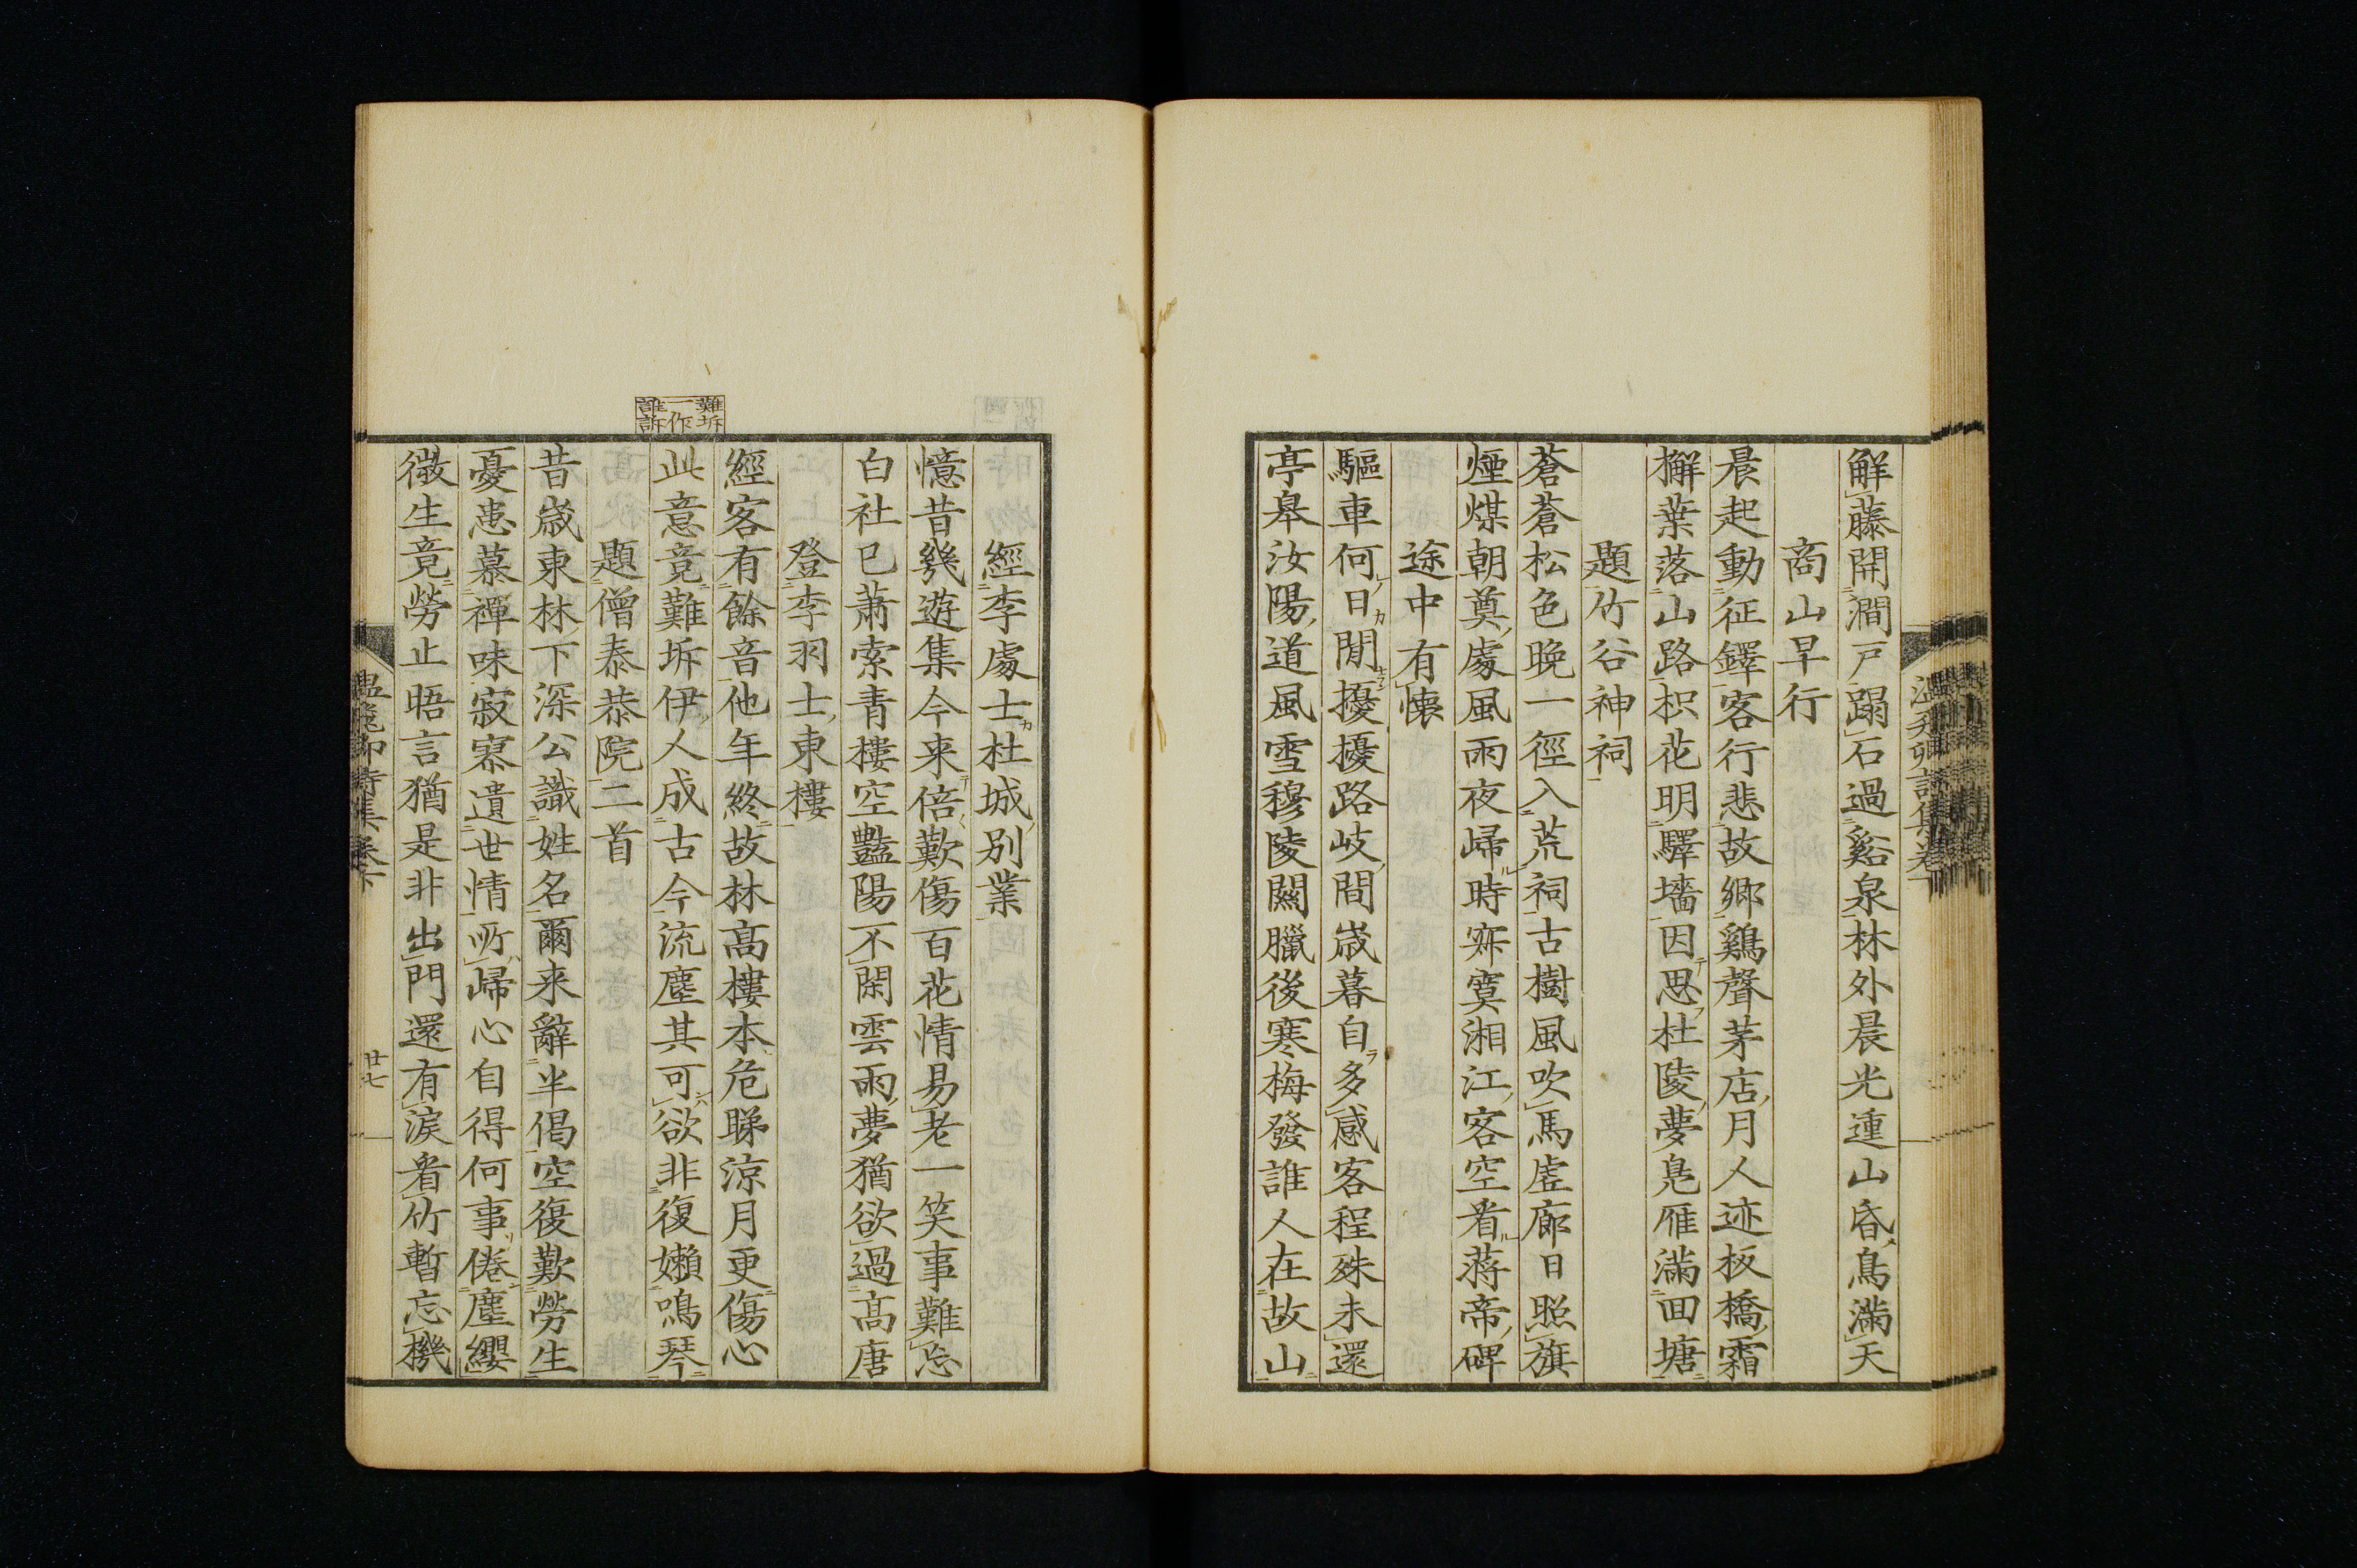 鮮藤開澗戸蹋石過谿泉林外晨光連山昏鳥滿天
商山早行
晨起動征鐸客行悲故鄉鷄聲茅店月人迹板橋霜
檞葉落山路枳花明驛墻因思杜陵夢鳧雁滿回塘
題竹谷神祠
蒼蒼松色晚一徑入荒祠古樹風吹馬虛廊日照旗
煙煤朝奠處風雨夜歸時寂寞湘江客空看蔣帝碑
途中有懷
驅車何日閒擾擾路岐間歲暮自多感客程殊未還
亭皋汝陽道風雪穆陵關臘後寒梅發誰人在故山
經李處士杜城別業
憶昔幾遊集今来倍歎傷百花情易老一笑事難忘
白社已蕭索青樓空豔陽不閑雲雨夢猶欲過高唐
登李羽士東樓
經客有餘音他年終故林高樓本危睇涼月更傷心
此意竟難坼伊人成古今流塵其可欲非復嬾鳴琴
難坼一作誰訴
題僧泰恭院二首
昔歲東林下深公識姓名爾来辭半偈空復歎勞生
憂患慕禪味寂寥遺世情所歸心自得何事倦塵纓
微生竟勞止晤言猶是非出門還有淚看竹暫忘機
溫飛卿詩集卷下
廿七